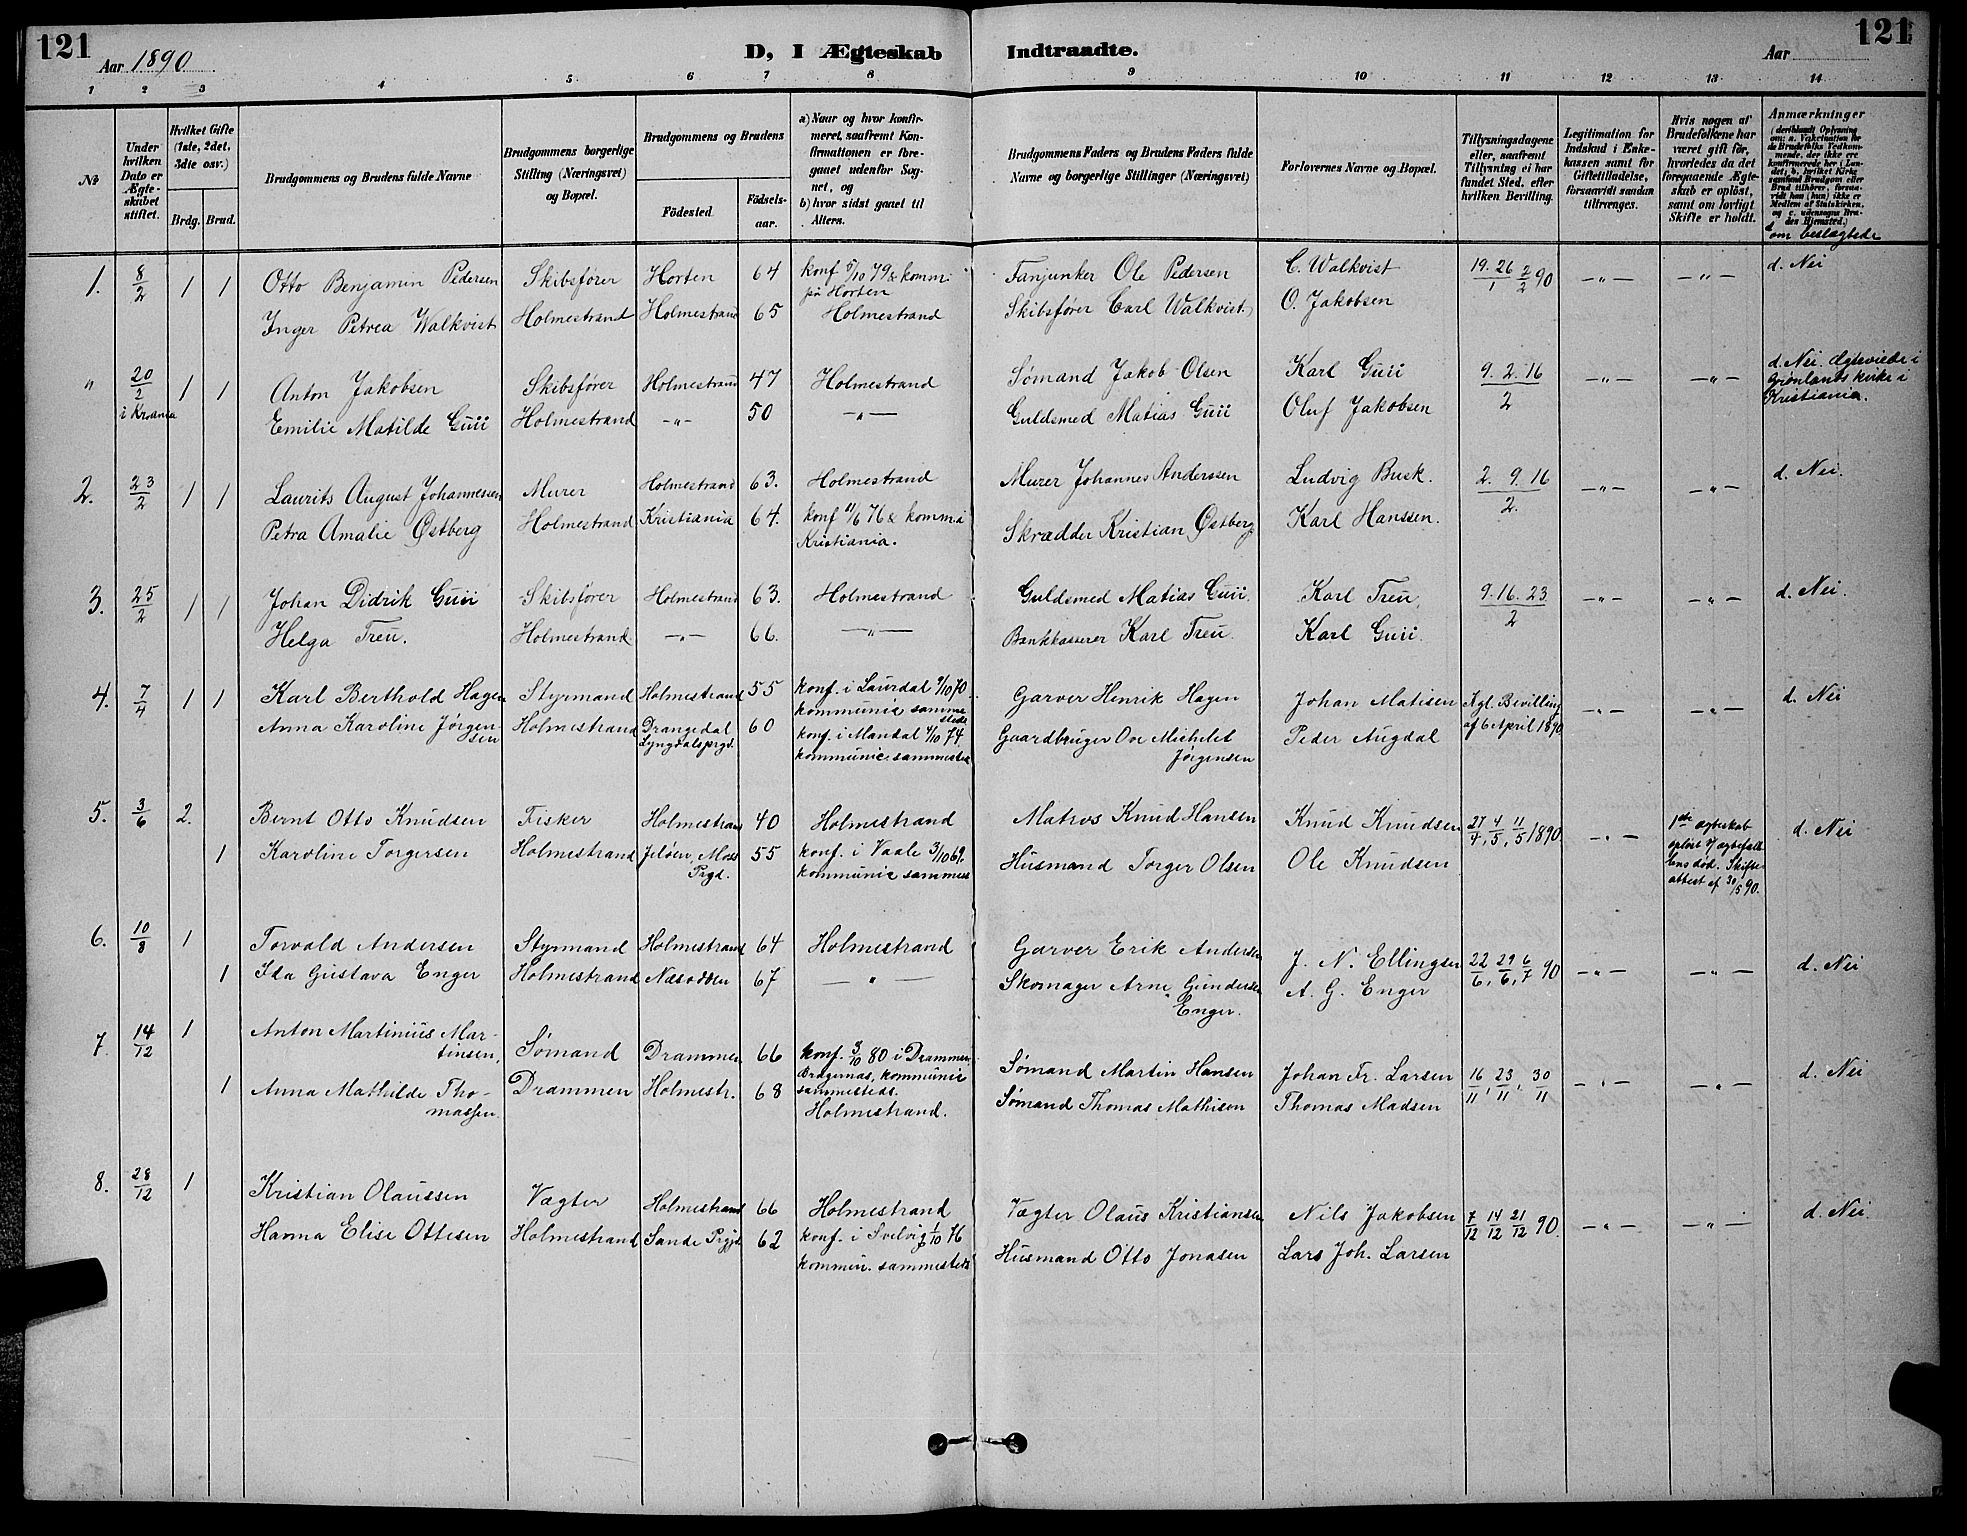 121
Aar 1890
D, I Ægteskab Indtraadte.
Aar
121
1 2 3 4 5 6 7 8 9 10 11 12 13 14
№
Under hvilken Dato er Ægteskabet stiftet.
Hvilket Gifte (1ste, 2det, 3die osv.)
Brdg. Brud.
Brudgommens og Brudens fulde Navne
Brudgommens borgerlige Stilling (Næringsvei) og Bopæl.
Brudgommens og Brudens
Födested.
Födsels-aar.
a) Naar og hvor konfirmeret, saafremt Konfirmationen er foregaaet udenfor Sognet, og
b) hvor sidst gaaet til Alters.
Brudgommens Faders og Brudens Faders fulde Navne og borgerlige Stillinger (Næringsvei)
Forlovernes Navne og Bopæl.
Tillysningsdagene eller, saafremt Tillysning ei har fundet Sted, efter hvilken Bevilling.
Legitimation for Indskud i Enkekassen samt for Giftetilladelse, forsaavidt saadan tiltrænges.
Hvis nogen af Brudefolkene har været gift för, hvorledes da det foregaaende Ægteskab er oplöst, samt om lovligt Skifte er holdt.
Anmærkninger
d om beslægtede
1. 8/2 1 1 Otto Benjamin Pedersen Skibsfører Horten 64 konf 5/10 79 & komm: Fanjunker Ole Pedersen C. Walkvist 19. 26/1 2/2 90 —„— —„— d. Nei
paa Horten
Inger Petrea Walkvist Holmestrand Holmestrand 65 Holmestrand Skibsfører Carl Walkvist. O. Jakobsen
„ 20/2 1 1 Anton Jakobsen Skibsfører Holmestrand 47 Holmestrand Sømand Jakob Olsen Karl Guii 9. 2. 16/2 —„— —„— d. Nei. Ægteviede i
i Krania
Grønlands kirke i
Kristiania.
Emilie Matilde Guii Holmestrand —„— 50 —„— Guldsmed Matias Guii Oluf Jakobsen
2. 23/2 1 1 Laurits August Johannessen Murer Holmestrand 63. Holmestrand Murer Johannes Anderssen Ludvig Busk. 2. 9. 16/2. —„— —„— d. Nei.
Petra Amalie Østberg Holmestrand Kristiania 64. konf 11/6 76 & komm. i Skrædder Kristian Østberg Karl Hanssen.
Kristiania.
3. 25/2 1 1 Johan Didrik Guii Skibsfører Holmestrand 63. Holmestrand Guldsmed Matias Guii. Karl Treu. 9. 16. 23/2 —„— —„— d. Nei.
Helga Treu. Holmestrand —„— 66. —„— Bankkasserer Karl Treu. Karl Guii.
4. 7/4 1 1 Karl Berthold Hagen Styrmand Holmestrand 55 konf. i Laurdal 9/10 70. Garver Henrik Hagen Johan Matisen Kgl. Bevilling —„— —„— d. Nei
kommunic. sammestede
Anna Karoline Jørgensen Holmestrand Drangedal 60 konf. i Mandal 4/10 74. Gaardbruger Ove Michelet Peder Augdal af 6 April 1890
Lyngdalsprgd. kommunic. sammested Jørgensen
5. 3/6 2. Bernt Otto Knudsen Fisker Holmestrand 40 Holmestrand Matros Knud Hansen Knud Knudsen 27/4, 4/5, 11/5 1890 —„— 1ste ægteskab d. Nei
opløst v. ægtefæll
1 Karoline Torgersen Holmestrand Jeløen, Moss 55 konf. i Vaale 3/10 69. Husmand Torger Olsen Ole Knudsen ens død. Skifte
Prgd. kommunic sammest attest af 30/5 90.
6. 10/8 1 Torvald Andersen Styrmand Holmestrand 64 Holmestrand Garver Erik Andersen J. N. Ellingsen 22/6, 29/6, 6/7 90 —„— —„— d. Nei
1 Ida Gustava Enger Holmestrand Nesodden 67 —„— Skomager Arne Gundersen A. G. Enger
Enger.
7. 14/12 1 Anton Martinius Mar-
tinsen, Sømand Drammen 66 konf. 3/10 80 i Drammen, Sømand Martin Hansen Johan Fr. Larsen 16/11, 23/11, 30/11 —„— —„— d. Nei
Bragernas, kommunic
1 Anna Mathilde Tho- Drammen Holmestr. 68 sammesteds. Sømand Thomas Mathison Thomas Madsen
massen. Holmestrand.
8. 28/12 1 Kristian Olaussen Vægter Holmestrand 66 Holmestrand Vægter Olaus Kristiansen Nils Jakobsen 7/12 14/12 21/12 90. —„— —„— d. Nei.
Hanna Elise Ottesen Holmestrand Sande Prgjd 62 konf. i Svelvig 1/10 76 Husmand Otto Jonasen Lars Joh. Larsen
kommun. sammesteds